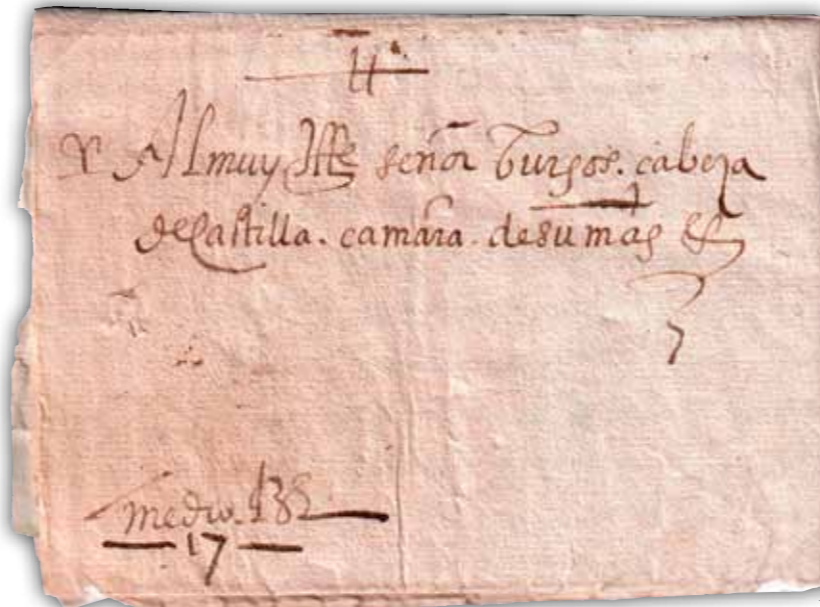 Al muy Ille señor burgos. cabeça
de Castilla. camara. de su mag
medio.
17